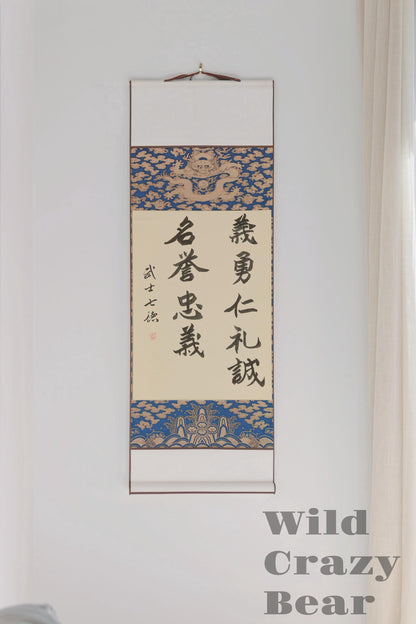 義勇仁礼誠
名誉忠義
武士七德
Wild
Crazy
Bear